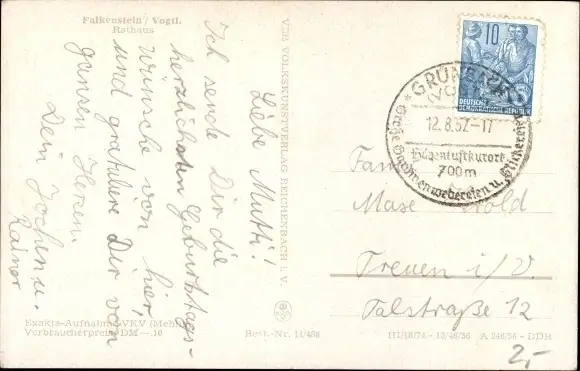 Falkenstein / Vogtl.
Rathaus
Liebe Mutti!
Ich sende Dir die
herzlichsten Geburtstags-
wünsche von hier,
und gratuliere Dir von
ganzen Herzen.
Dein Jochen u.
Rainer
VEB VOLKSKUNSTVERLAG REICHENBACH i. V.
Exakta-Aufnahme VKV (Mehl)
Verbraucherpreis DM —.10
Best.-Nr. 14/486
10
DEUTSCHE
DEMOKRATISCHE REPUBLIK
GRÜNBACH
VOGTL
12.8.57.-17
Höhenluftkurort
700m
Große Gardinenwebereien u. Stickereien
Fam
Max Kold
Treuen i/V.
Talstraße 12
III/18/74 - 13/46/56 A 246/56 - DDR
2,-